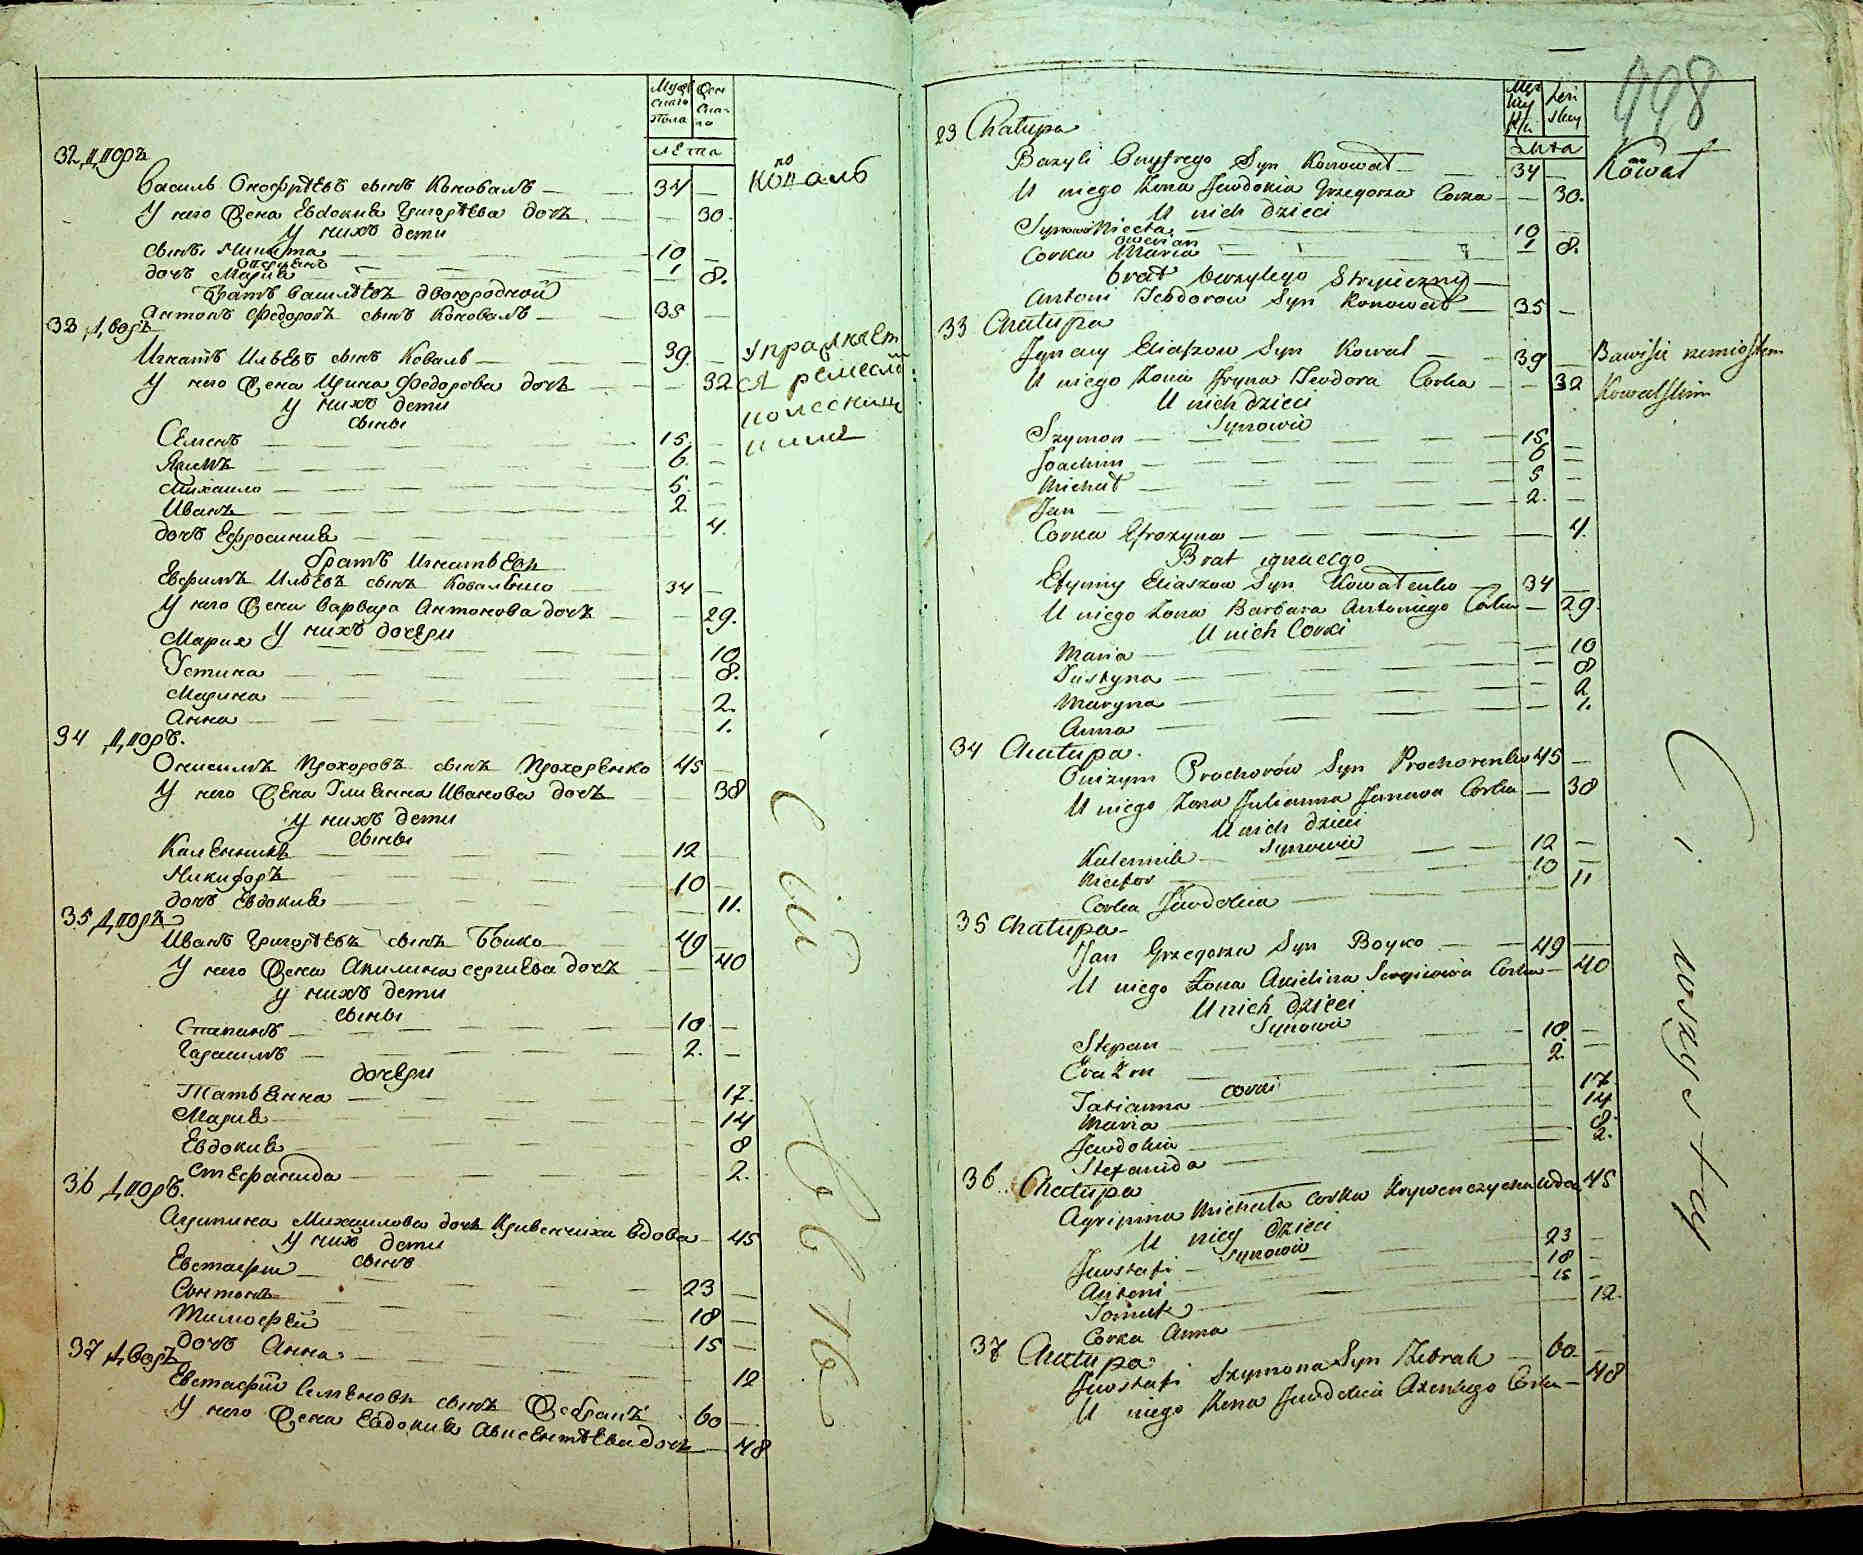 Мужескаго пола
Женскаго
лета
32 Дворъ
Василь Онофріевъ сынъ Коновалъ — 34 —
У него жена Евдокия Григоріева дочь — 30.
У нихъ дети
сынъ Микита — 10 —
Аверіянъ — 1
дочь Мария — 8.
Братъ Василіевъ двоюродной
Антонъ Федоровъ сынъ Коновалъ — 35 —
Коновалъ
33 Дворъ
Игнатъ Ильевъ сынъ Коваль — 39. —
У него жена Ирина Федорова дочь — 32
У нихъ дети
сыны
Семенъ — 15. —
Якимъ — 6. —
Михаило — 5. —
Иванъ — 2. —
дочь Ефросиния — 4.
братъ Игнатьевъ
Евфимъ Ильевъ сынъ Коваленко — 34 —
У него жена Варвара Антонова дочь — 29.
У нихъ дочери
Мария — 10
Устина — 8.
Марина — 2.
Анна — 1.
34 Дворъ.
Онисимъ Прохоровъ сынъ Прохоренко 45 —
У него жена Улиянна Иванова дочь — 38
У нихъ дети
сыны
Каленникъ — 12 —
Никифоръ — 10 —
дочь Евдокия — 11.
35 Дворъ
Иванъ Григоріевъ сынъ Бойко — 49 —
У него жена Акилина Сергиева дочь — 40
У нихъ дети
сыны
Степанъ — 18 —
Гарасимъ — 2. —
дочери
Татьянна — 17.
Мария — 14
Евдокия — 8
Стефанида — 2.
36 Дворъ.
Агрипина Михаилова дочь Кривенчиха вдова — 45
У них дети
сынъ
Евстафии — 23 —
Антонъ — 18 —
Тимофей — 15 —
дочь Анна — 12
37 Дворъ
Евстафий Семеновъ сынъ Жебракъ — 60 —
У него жена Евдокия Авксентіева дочь — 48
498
Męzkiy Płci
Żeńskiy
Lata
23 Chatupa
Bazyli Onyfrego Syn Konował — 34 —
U niego Żona Jewdokia Grzegorza Corka — 30.
U nich dzieci
Synowie Niceta — 10
Owerian — 1
Corka Maria — 8.
brat bazylego Stryieczny —
Antoni Teodorow Syn Konował — 35 —
Konował
33 Chatupa
Jgnacy Eliaszow Syn Kowal — 39 —
U niego Żona Jryna Teodora Corka — 32
Bawi się rzemiosłem
Kowalskim
U nich dzieci
Synowie
Szymon — 15 —
Joachim — 6 —
Michał — 5 —
Jan — 2. —
Corka Efrozyna — 4.
Brat ignacego
Efymiy Eliaszow Syn Kowalenko — 34 —
U niego Żona Barbara Antoniego Corka — 29.
U nich Corki
Maria — 10
Justyna — 8
Maryna — 2
Anna — 1.
34 Chatupa.
Onizym Prochorów Syn Prochorenko 45 —
U niego Żona Julianna Janowa Corka — 38
U nich dzieci
Synowie
Kalennik — 12 —
Nicefor — 10 —
Corka Jewdokia — 11
35 Chatupa
Jan Grzegorza Syn Boyko — 49 —
U niego Żona Akielina Sergieiewa Corka — 40
U nich dzieci
Synowie
Stepan — 18. —
Erazm — 2. —
corki
Tatianna — 17
Maria — 14
Jewdokia — 8.
Stefanida — 2.
36 Chatupa
Agripina Michała corka Krywenczycha wdo. 45
U niey dzieci
Synowie
Jewstafi — 23 —
Antoni — 18 —
Tomek — 15 —
Corka Anna — 12.
37 Chatupa
Jewstafi Szymona Syn Żebrak — 60 —
U niego Żona Jewdokia Axentego Corka — 48